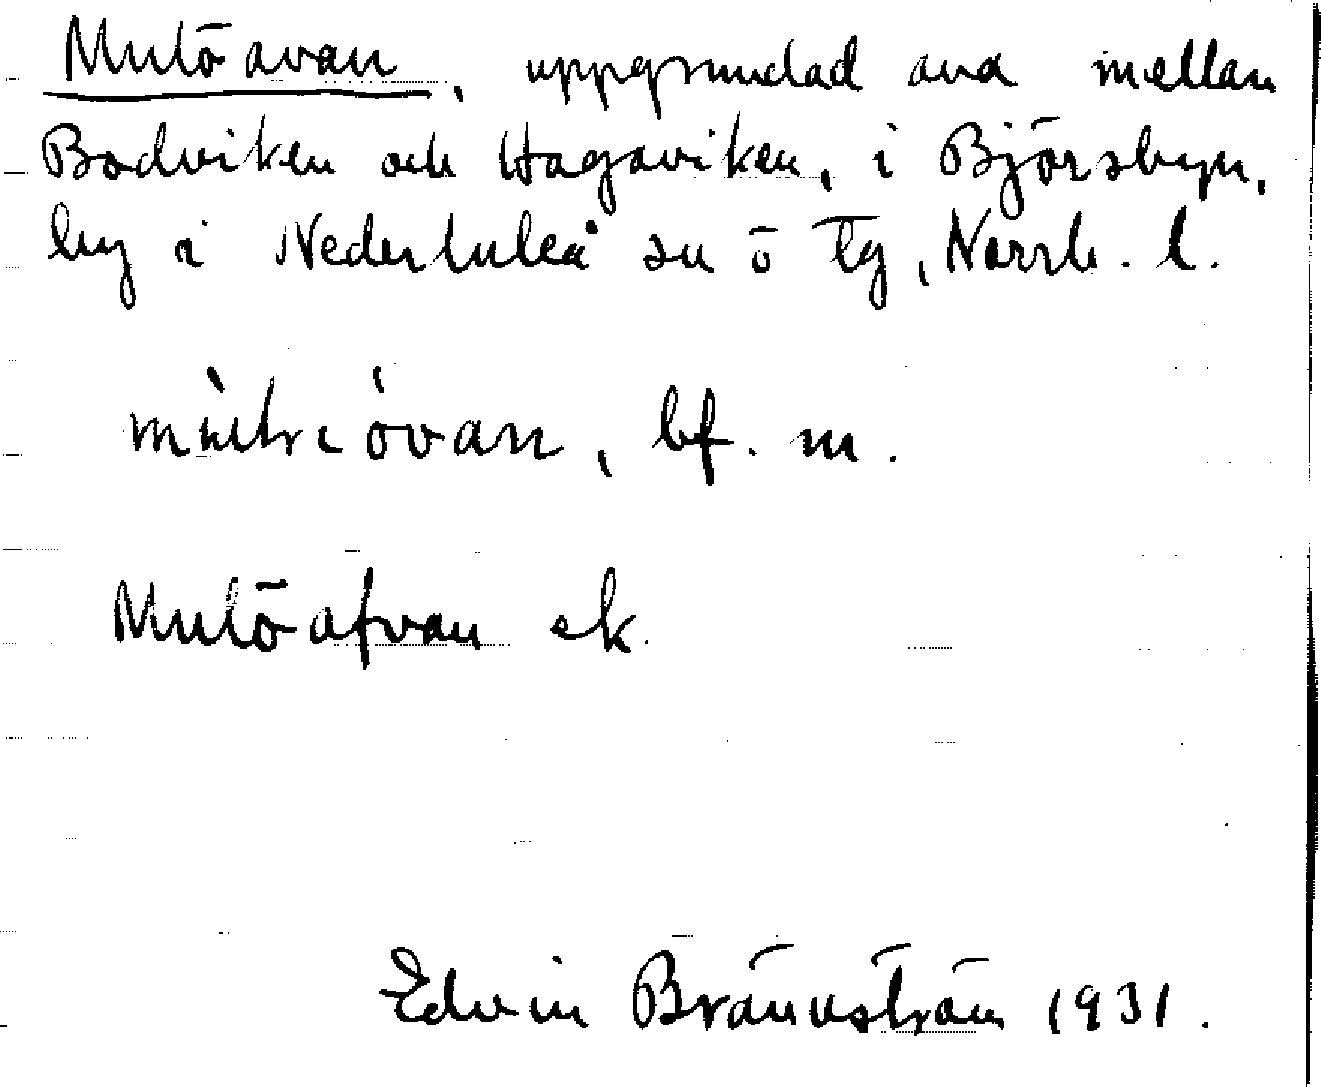 Mulöavan, uppgrundad ava mellan
Bodviken och Hagaviken, i Björsbyn,
by i Nederluleå sn ö tg, Norrb. l.
bf. m.
Mulöafvan ek.
Edvin Brännström 1931.